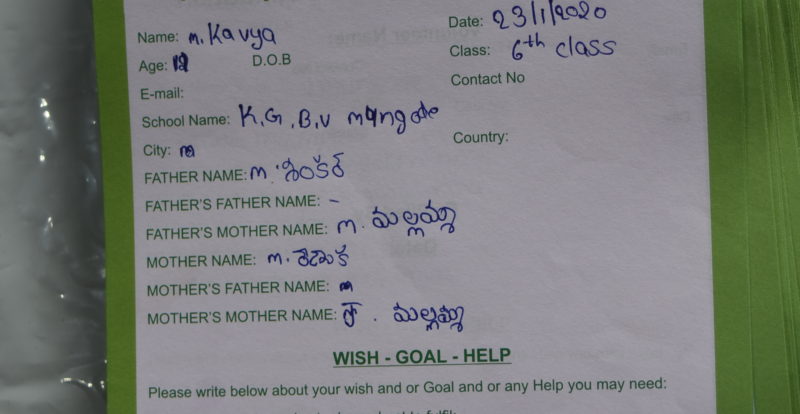 Name: M. Kavya Date: 23/1/2020
Age: 12 D.O.B Class: 6th class
E-mail: Contact No
School Name: K.G.B.V
City: Country:
FATHER NAME: M. శంకర్
FATHER'S FATHER NAME: -
FATHER'S MOTHER NAME: M. మల్లమ్మ
MOTHER NAME: M.
MOTHER'S FATHER NAME:
MOTHER'S MOTHER NAME: మల్లమ్మ
WISH - GOAL - HELP
Please write below about your wish and or Goal and or any Help you may need: